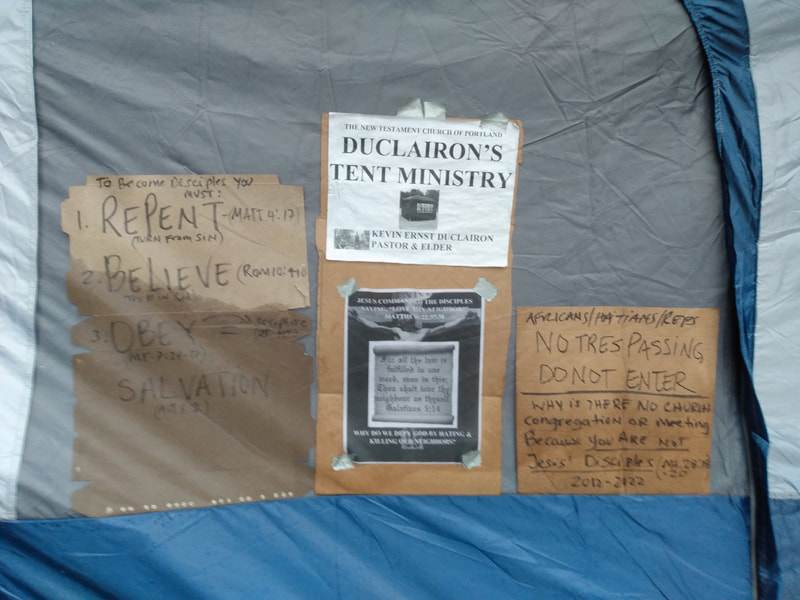 To Become Disciples you
MUST:
1. REPENT-(MATT 4:17)
(TURN From SIN)
2. BELIEVE (ROM 10:
3. OBEY
SALVATION
THE NEW TESTAMENT CHURCH OF PORTLAND
DUCLAIRON'S
TENT MINISTRY
KEVIN ERNST DUCLAIRON
PASTOR & ELDER
JESUS COMMANDED THE DISCIPLES
SAYING, "LOVE THY NEIGHBOR"
MATTHEW 22:37-39
For all the law is
fulfilled in one
word, even in this;
Thou shalt love thy
neighbour as thyself.
Galatians 5:14
WHY DO WE DEFY GOD BY HATING &
KILLING OUR NEIGHBORS?
AFRICANS/HATIANS/REPS
NO TRESPASSING
DO NOT ENTER
WHY IS THERE NO CHURCH
Congregation or Meeting
Because you ARE NOT
Jesus' Disciples
2012-2122